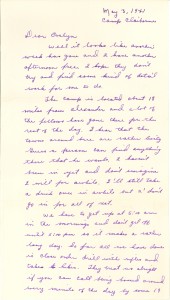 May 3, 1951
Camp
Dear Evelyn
Well it looks like another
week has gone and I have another
afternoon free. I hope they don't
try and find some kind of detail
work for me to do.
The camp is located about 18
miles from Alexandria and a lot of
the fellows have gone there for the
rest of the day. I hear that the
towns around here are rather
there a person can find anything
there that he wants. I haven't
been in yet and don't imagine
I will for awhile. I'll still take
a drink once in awhile but I don't
go in for all of
We have to get up at 5:00 am
in the mornings and don't get off
until 5:00 pm so it makes a rather
long day. So far all we have done
is close order drill with rifles and
That
if you can call being bored around
every minute of the day by some